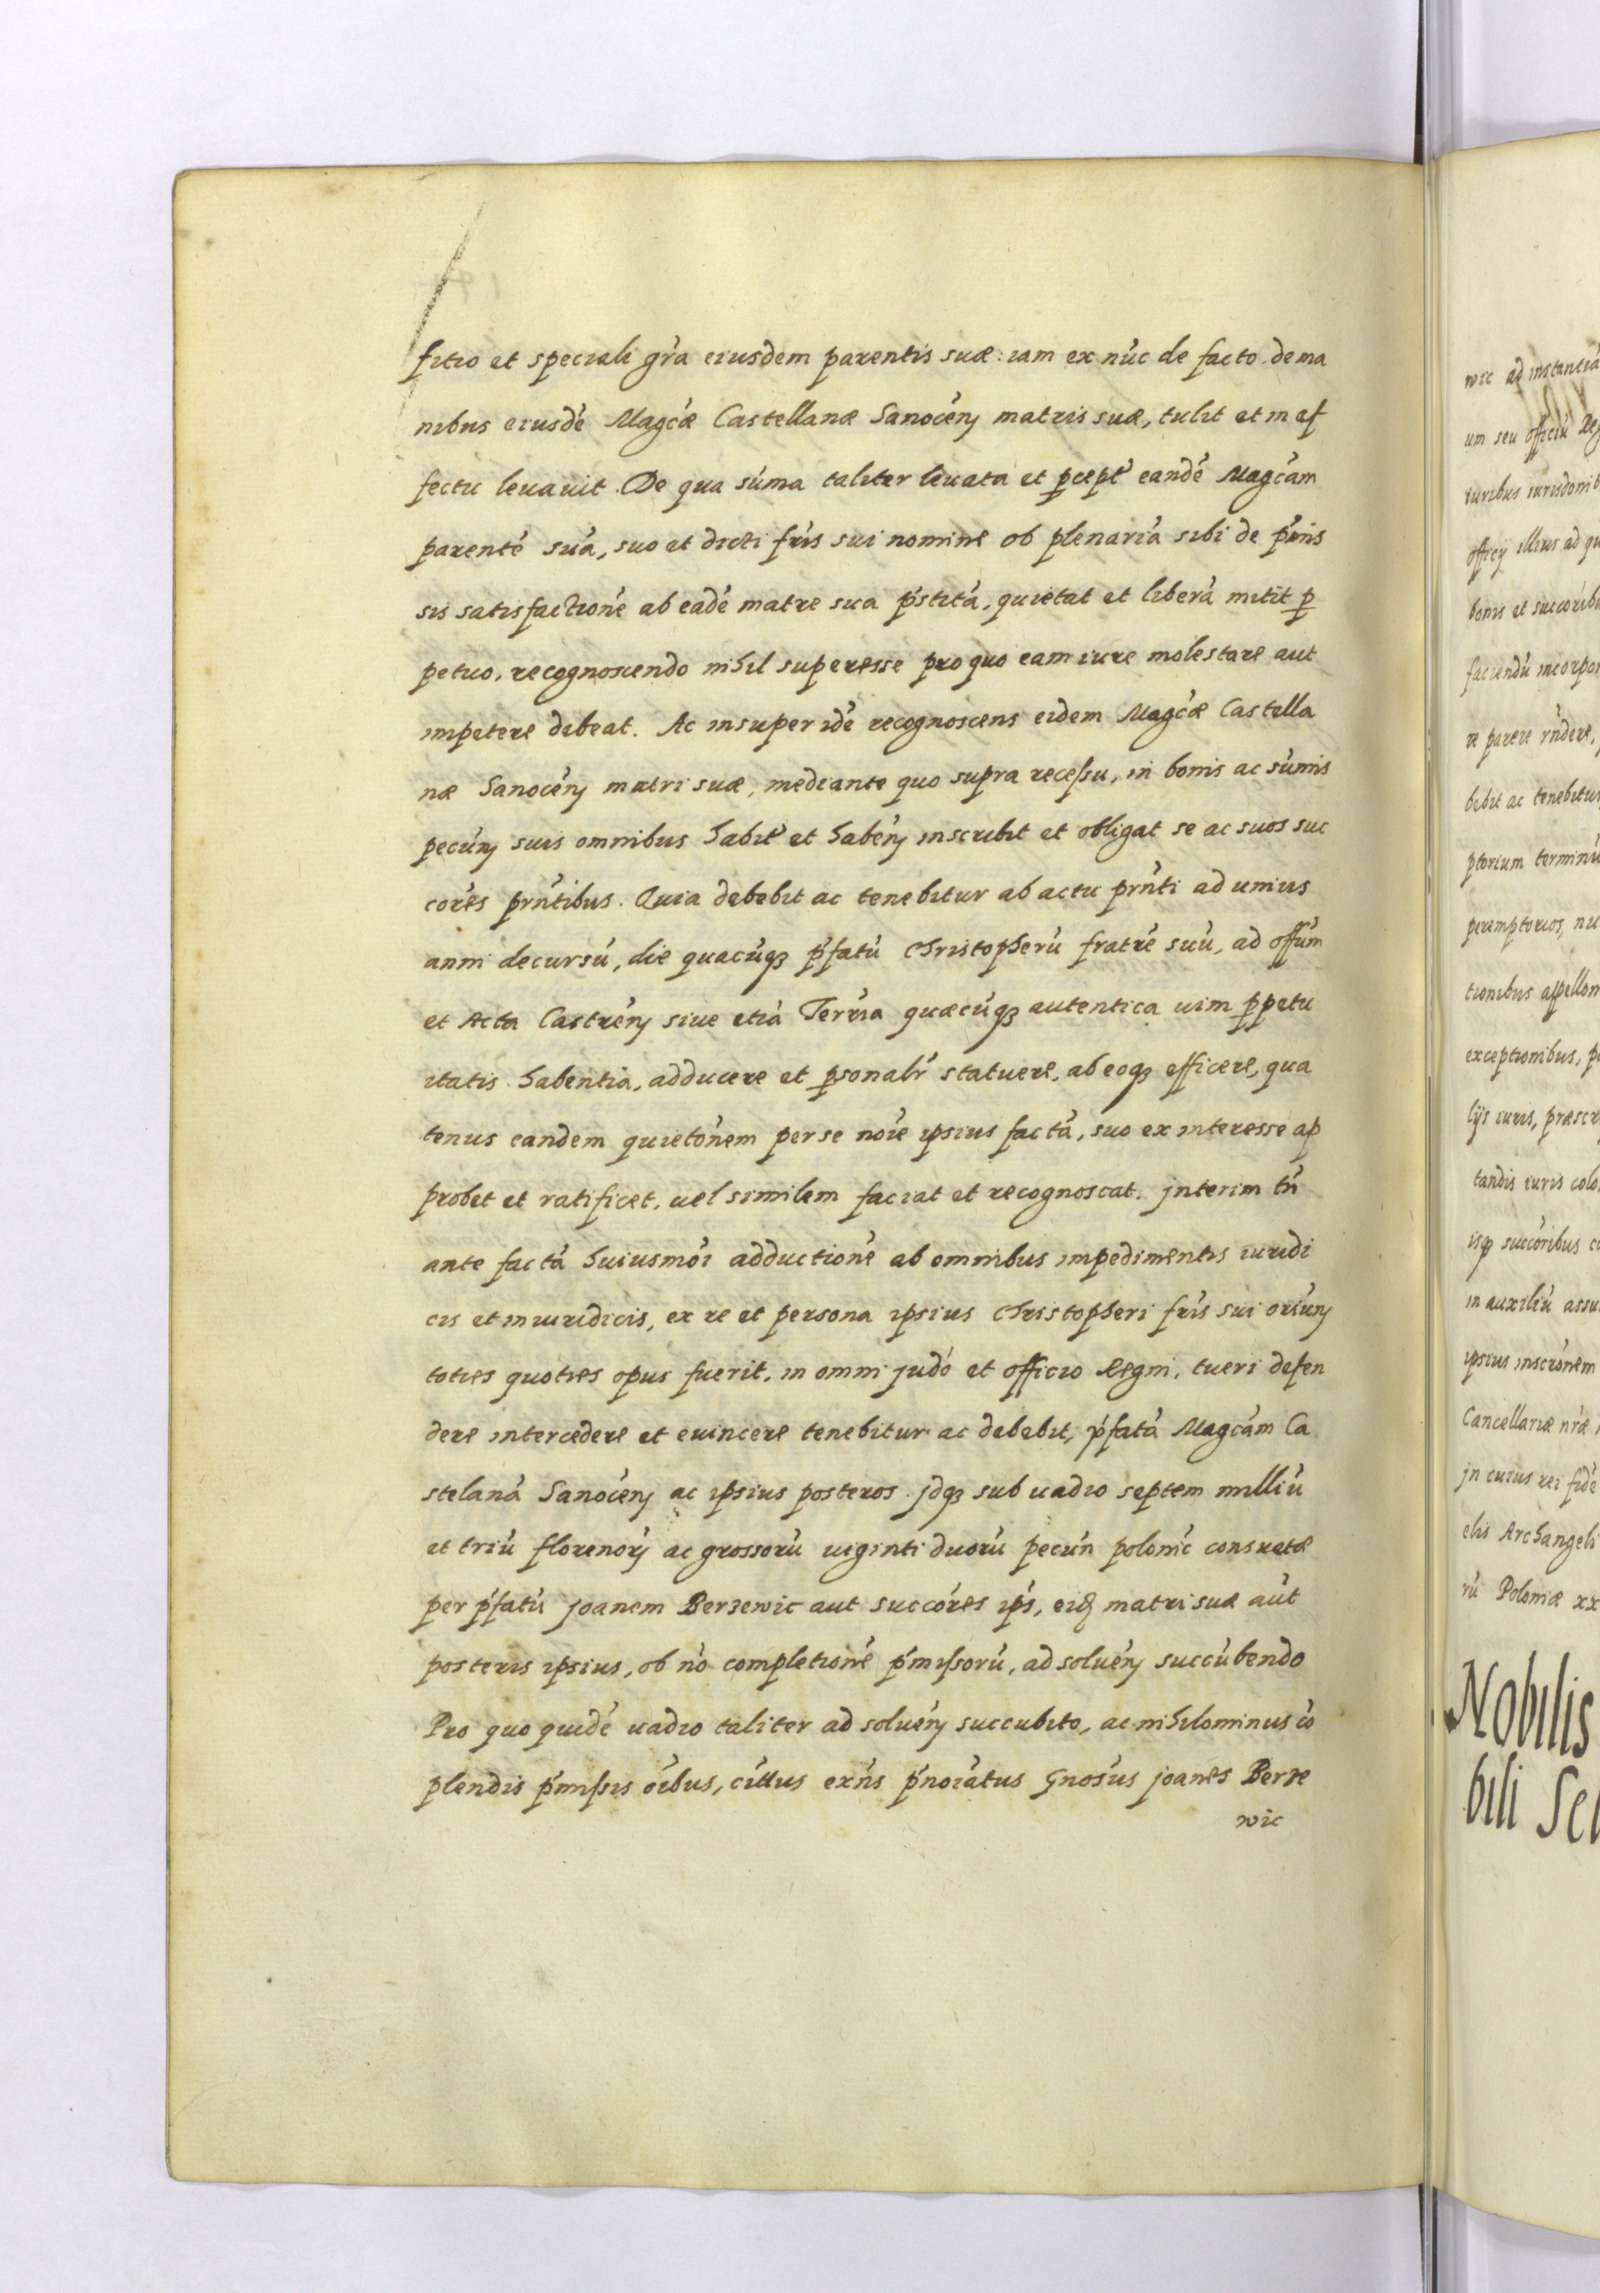 fitio et speciali gr̃a eiusdem parentis suæ: iam ex nũc de facto de ma
nibus eiusdẽ Magc̃æ Castellanæ Sanocẽn matris suæ, tulit et in ef
fectu leuauit. De qua sũma taliter leuata et ꝑcept̃ eandẽ Magc̃am
parentẽ suã, suo et dicti fr̃is sui nomine ob plenariã sibi de p̃mis
sis satisfactionẽ ab eadẽ matre sua p̃stitã, quietat et liberã mitit ꝑ
petuo, recognoscendo nihil superesse pro quo eam iure molestare aut
impetere debeat. Ac insuper idẽ recognoscens eidem Magc̃æ Castella
næ Sanocẽn matri suæ, mediante quo supra recessu, in bonis ac sũmis
pecũn suis omnibus habit̃ et habẽn inscribit et obligat se ac suos suc
cor̃es prñtibus. Quia debebit ac tenebitur ab actu prñti ad unius
anni decursũ, die quacũqꝫ p̃fatũ Christopherũ fratrẽ suũ, ad offũm
et Acta Castrẽn siue etiã Ter̃ria quæcũqꝫ autentica uim ꝑpetu
itatis habentia, adducere et ꝑsonalr̃ statuere, ab eoqꝫ efficere, qua
tenus eandem quietõnem per se noĩe ipsius factã, suo ex interesse ap
probet et ratificet, uel similem faciat et recognoscat. jnterim tñ
ante factã huiusmõi adductionẽ ab omnibus impedimentis iuridi
cis et iniuridicis, ex re et persona ipsius Christopheri fr̃is sui oriũn
toties quoties opus fuerit, in omni judõ et officio Regni, tueri defen
dere intercedere et euincere tenebitur ac debebit, p̃fatã Magcãm Ca
stelanã Sanocẽn ac ipsius posteros. jdqꝫ sub uadio septem milliũ
et triũ florenorꝫ ac grossorũ uiginti duorũ pecũn polonic̃ consuetæ
per p̃fatũ joanem Berzewic aut succõres ips̃, eidꝫ matri suæ aũt
posteris ipsius, ob nõ completionẽ p̃missorũ, ad soluẽn succũbendo
Pro quo quidẽ uadio taliter ad soluẽn succubito, ac nihilominus cõ
plendis p̃missis oĩbus, cittus exñs p̃noĩatus Gnosũs joanes Berze
wic
wic ad instantiã
um seu officiũ Reg
iuribus iurisdonib
officij illius ad qu
bonis et succõrib
faciendũ incorpor
re parere rñdere,
bebit ac tenebitur
ptorium terminũ
peremptorios, nu
tionibus appellon
exceptionibus, p
lijs iuris, præscr
tandis iuris colo
isqꝫ succõribus c
in auxiliũ assu
ipsius inscrõnem
Cancellariæ nr̃æ
jn cuius rei fidẽ
elis Archangeli
rũ Poloniæ xx
Nobilis
bili Se